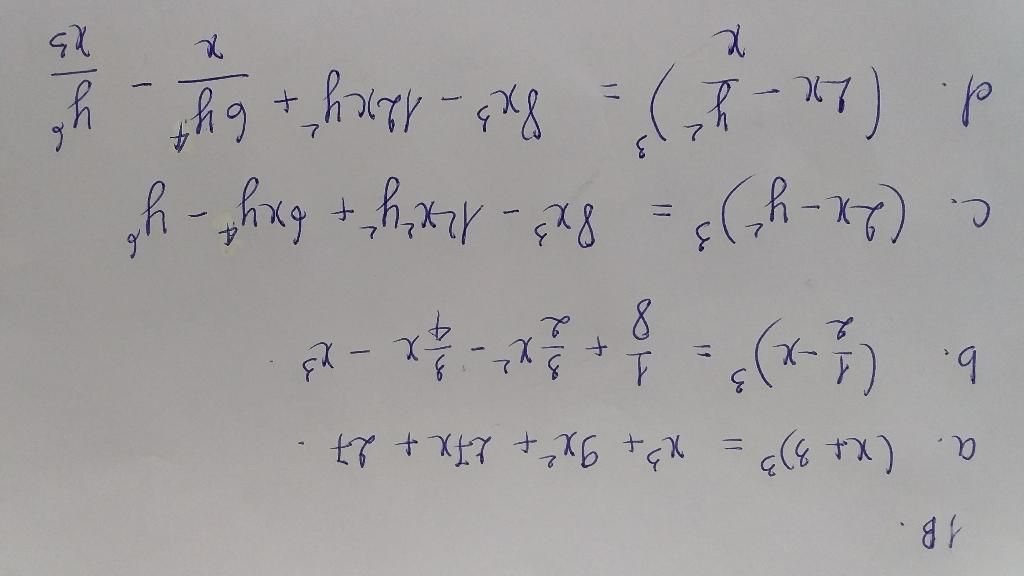 1B.
a. (x+3)³ = x³ + 9x² + 27x + 27.
b. (1/2 - x)³ = 1/8 + 3/2 x² - 3/4 x - x³.
c. (2x - y²)³ = 8x³ - 12x²y² + 6xy⁴ - y⁶
d. (2x - y²/x)³ = 8x³ - 12xy² + 6y⁴/x - y⁶/x³